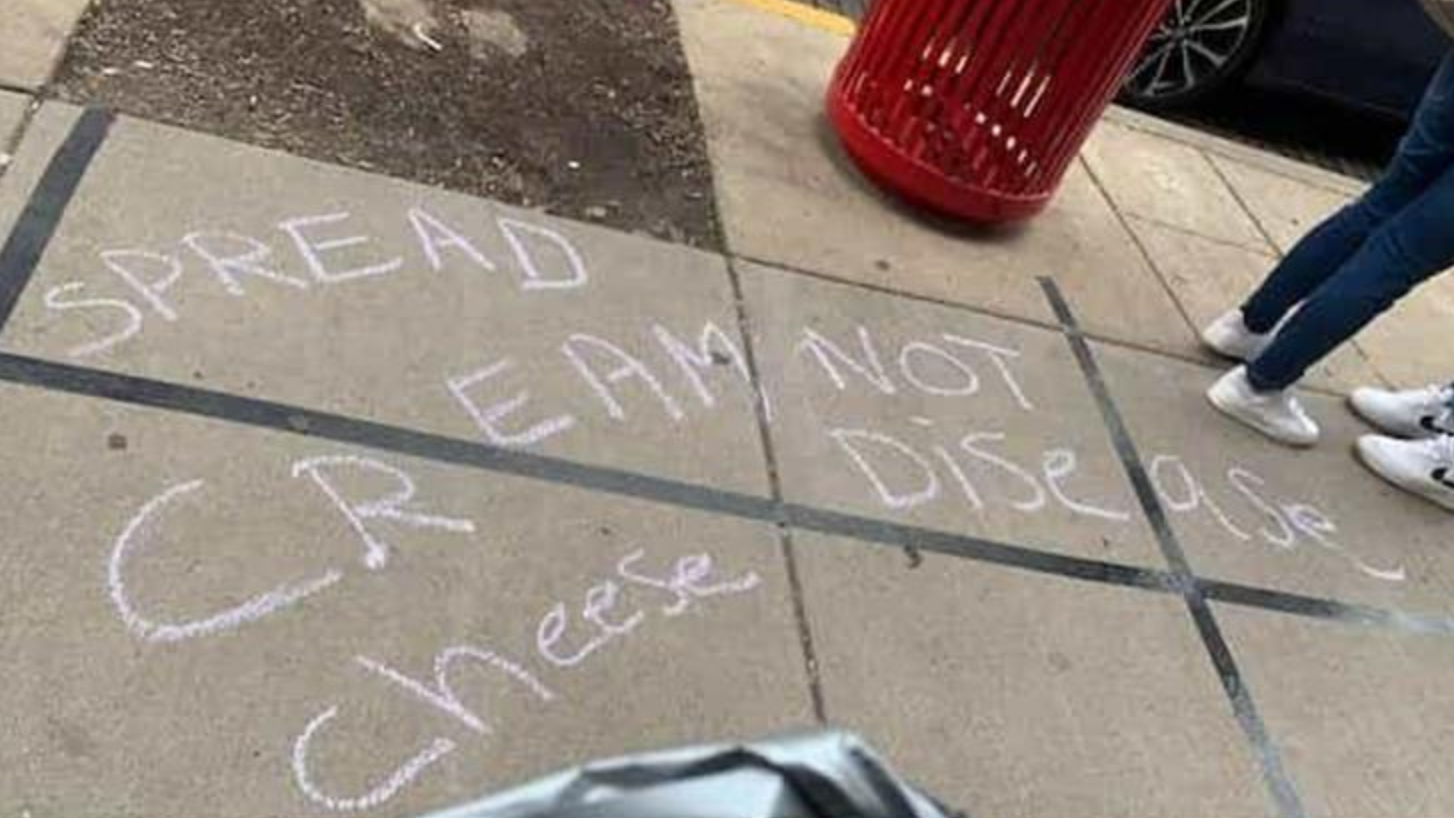 SPREAD
CREAM
cheese
NOT
Disease